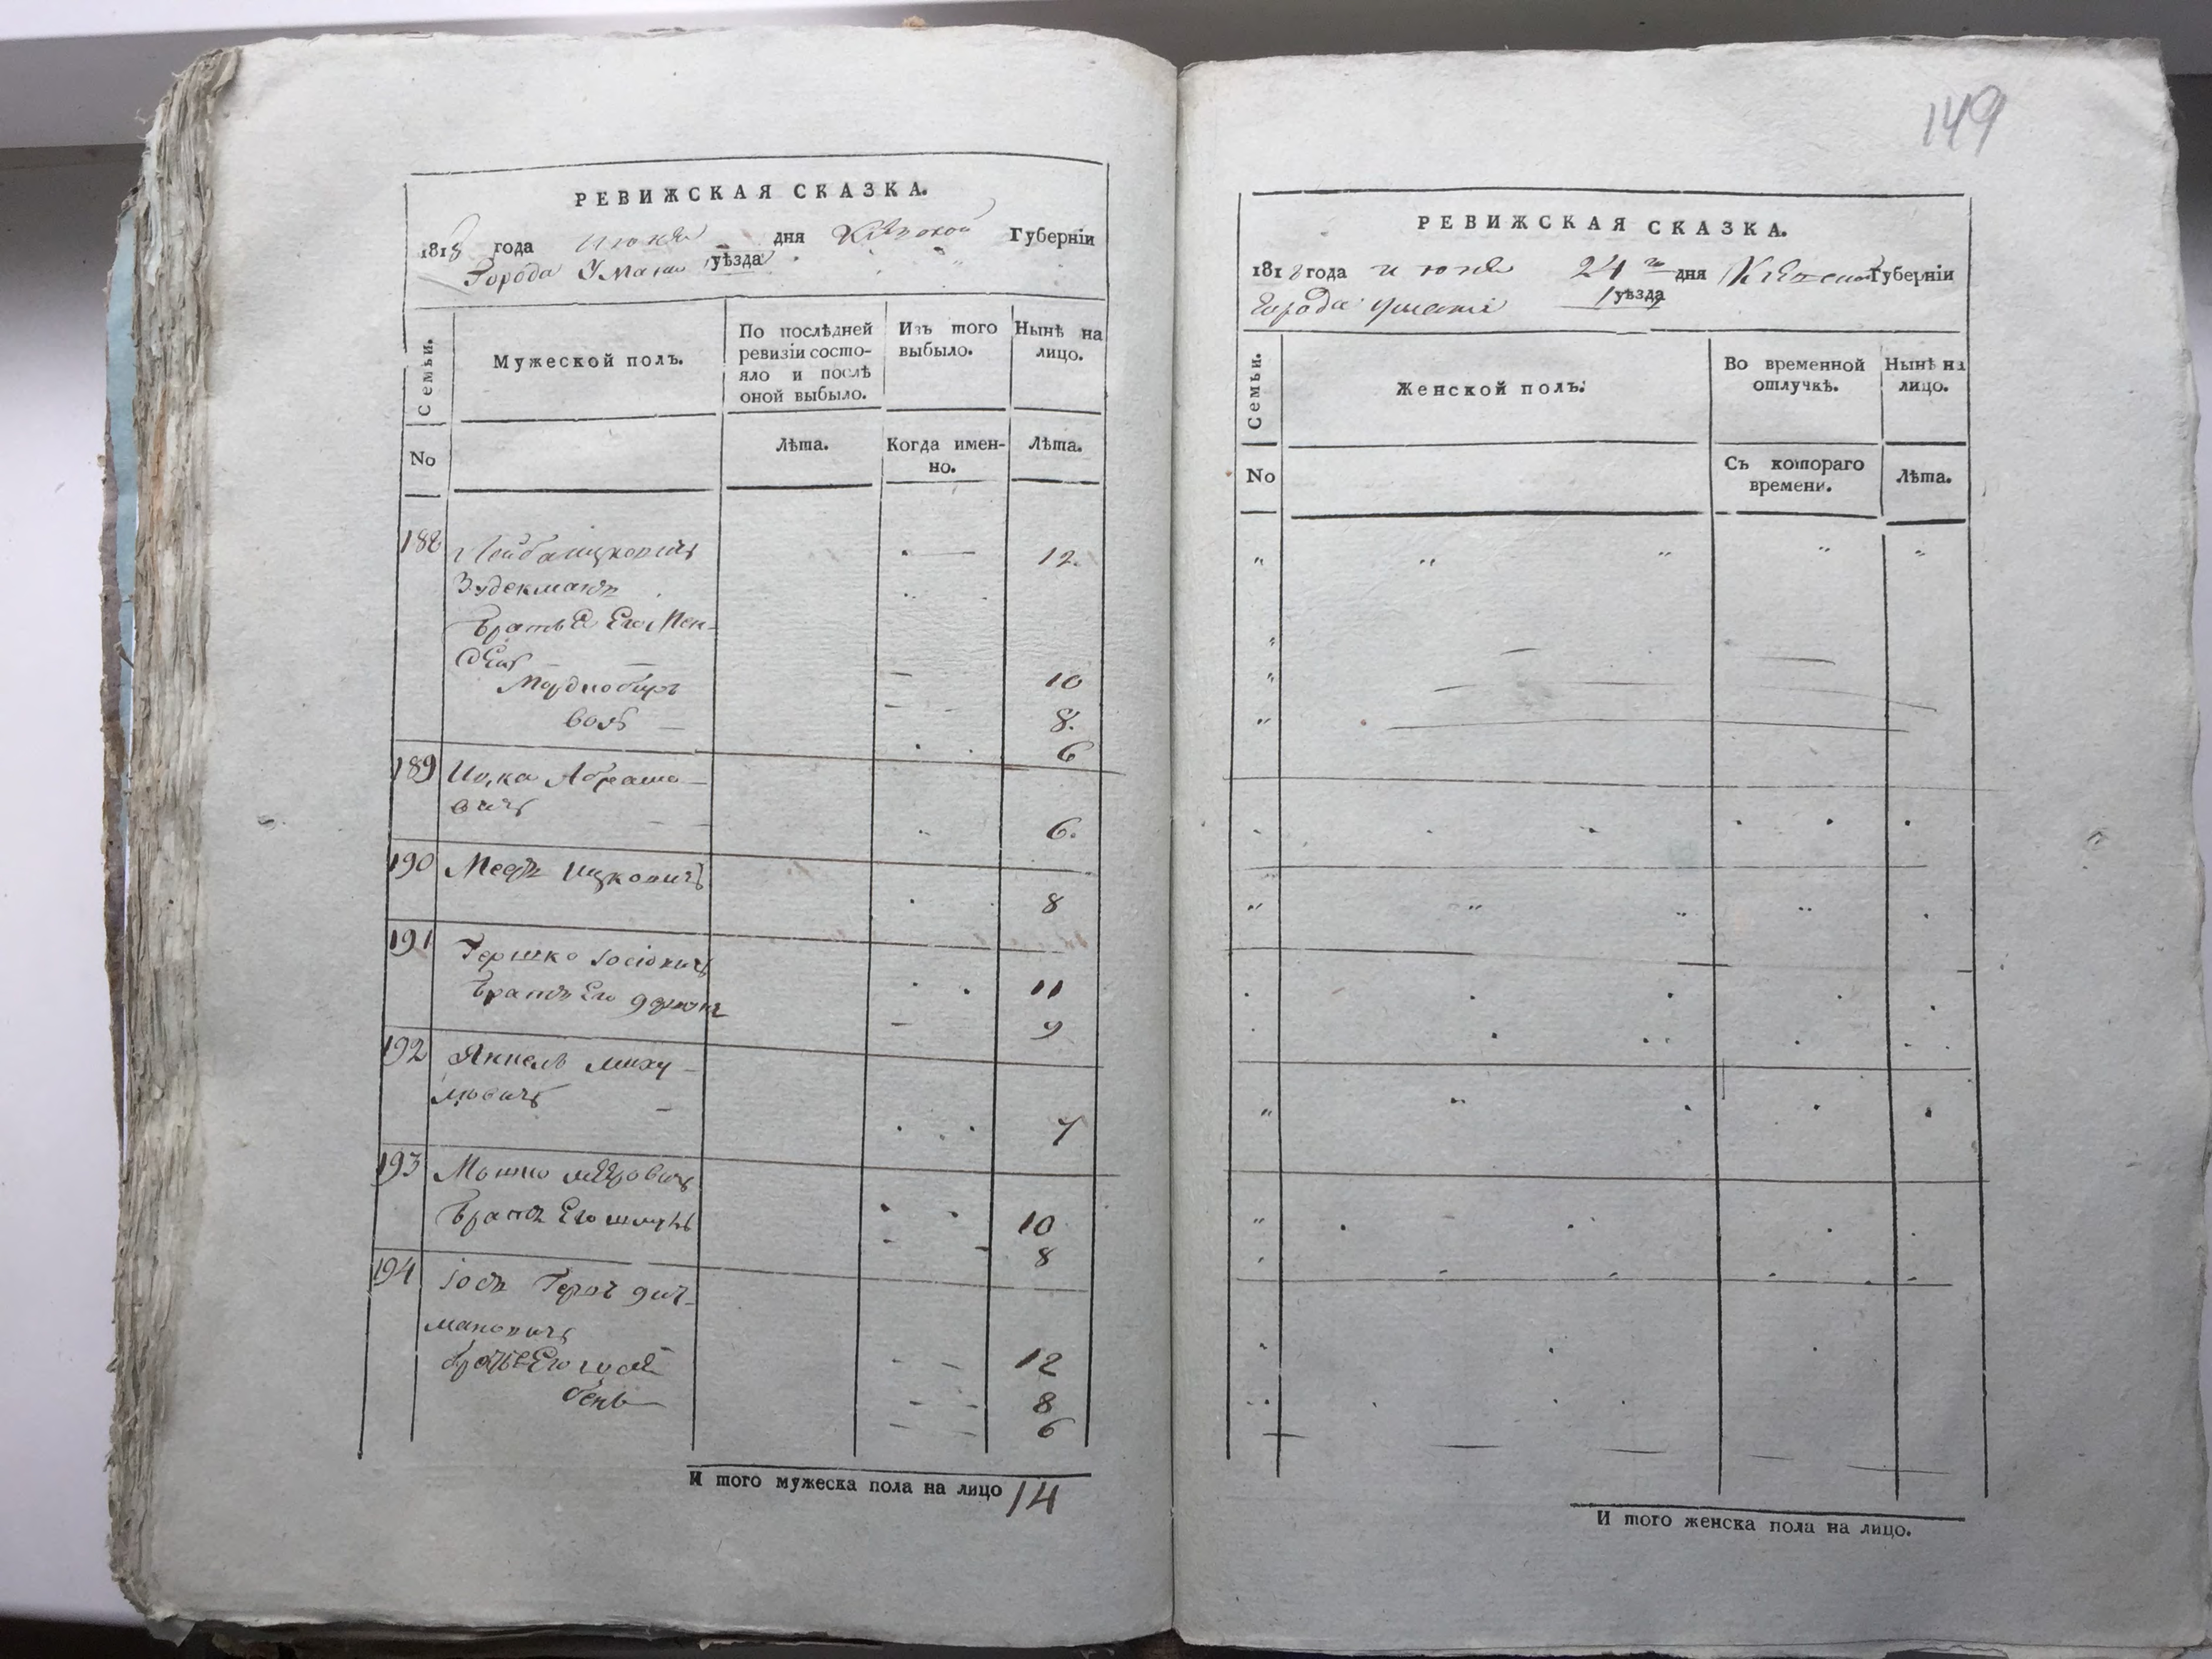 149
РЕВИЖСКАЯ СКАЗКА.
1818 года июня дня Кіевской Губерніи
Города Умани уѣзда
Семьи.
Мужеской полъ.
По послѣдней ревизіи состо-
яло и послѣ оной выбыло.
Изъ того выбыло.
Нынѣ на лицо.
No
Лѣта.
Когда имен-
но.
Лѣта.
188 Лейба Ицковичъ 12.
Зудекманъ
Братья Его Мен-
дель 10
8.
Волъ 6
189 Іоська Абрамо-
вичъ 6.
190 Мееръ Ицковичъ 8
191 Гершко Іосіовичъ 11
Братъ Его 9
192 Янкель Миху-
лювичъ 7
193 Мошко Меѣровичъ 10
Братъ Его Шмуль 8
194 Іосъ Герш Дит-
мановичъ 12
братья Его 8
бень 6
И того мужеска пола на лицо 14
РЕВИЖСКАЯ СКАЗКА.
1818 года июня 24го дня Кіевской Губерніи
Города Умани уѣзда
Семьи.
Женской полъ.
Во временной отлучкѣ.
Нынѣ на лицо.
No
Съ котораго времени.
Лѣта.
И того женска пола на лицо.